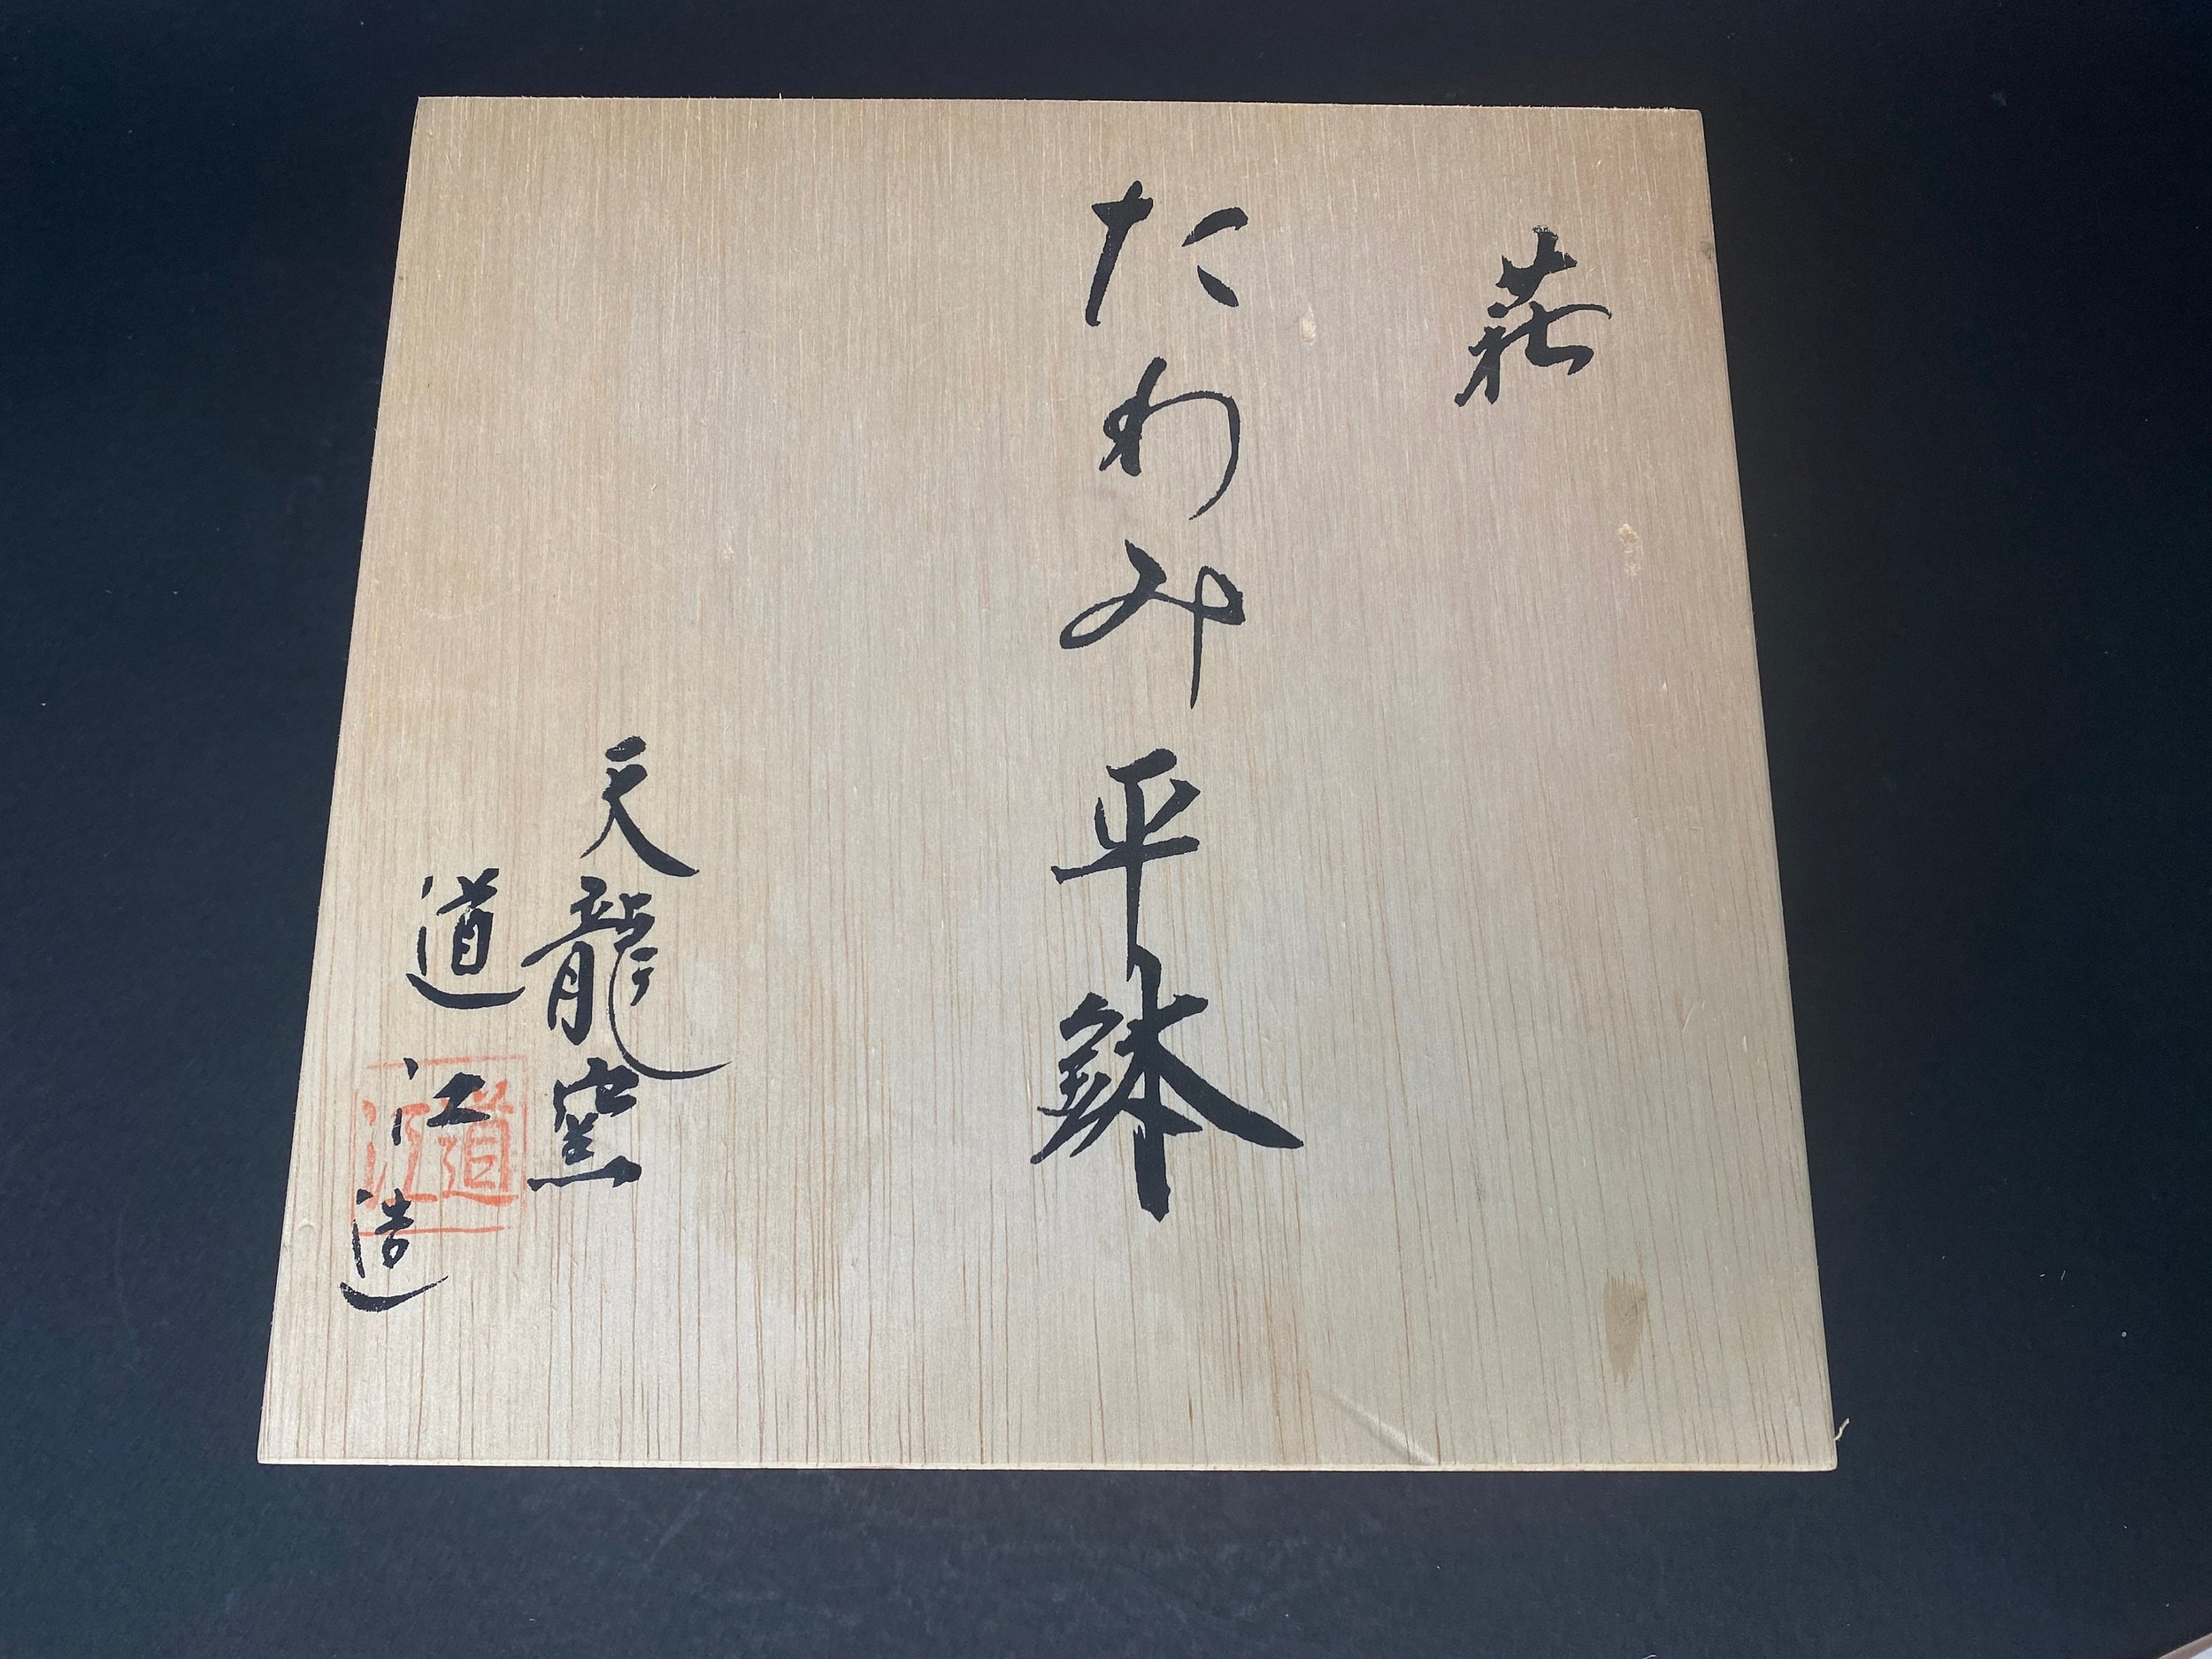 萩
たわみ平鉢
天龍窯
道江造
道江